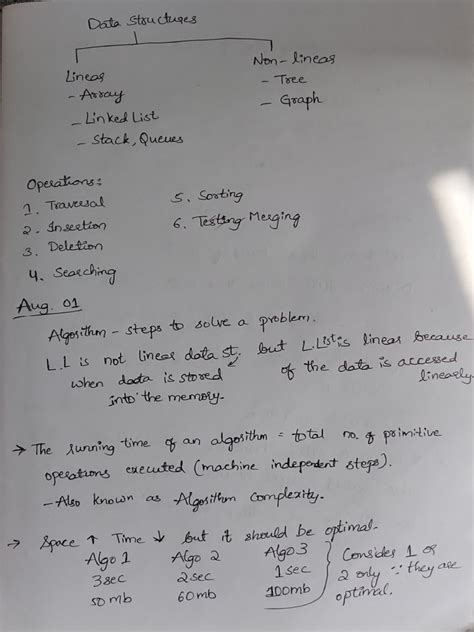 Data Structures
Linear
Non-linear
- Array
- Tree
- Linked List
- Graph
- Stack, Queues
Operations:
1. Traversal
5. Sorting
2. Insertion
6. Testing Merging
3. Deletion
4. Searching
Aug. 01
Algorithm - steps to solve a problem.
L.L is not linear data st. but L.List is linear because
when data is stored of the data is accessed
into the memory. linearly.
→ The running time of an algorithm = total no. of primitive
operations executed (machine independent steps).
- Also known as Algorithm Complexity.
→ Space ↑ Time ↓ but it should be optimal.
Algo 1 Algo 2 Algo 3
3sec 2sec 1sec
50mb 60mb 100mb
Consider 1 or
2 only ∵ they are
optimal.